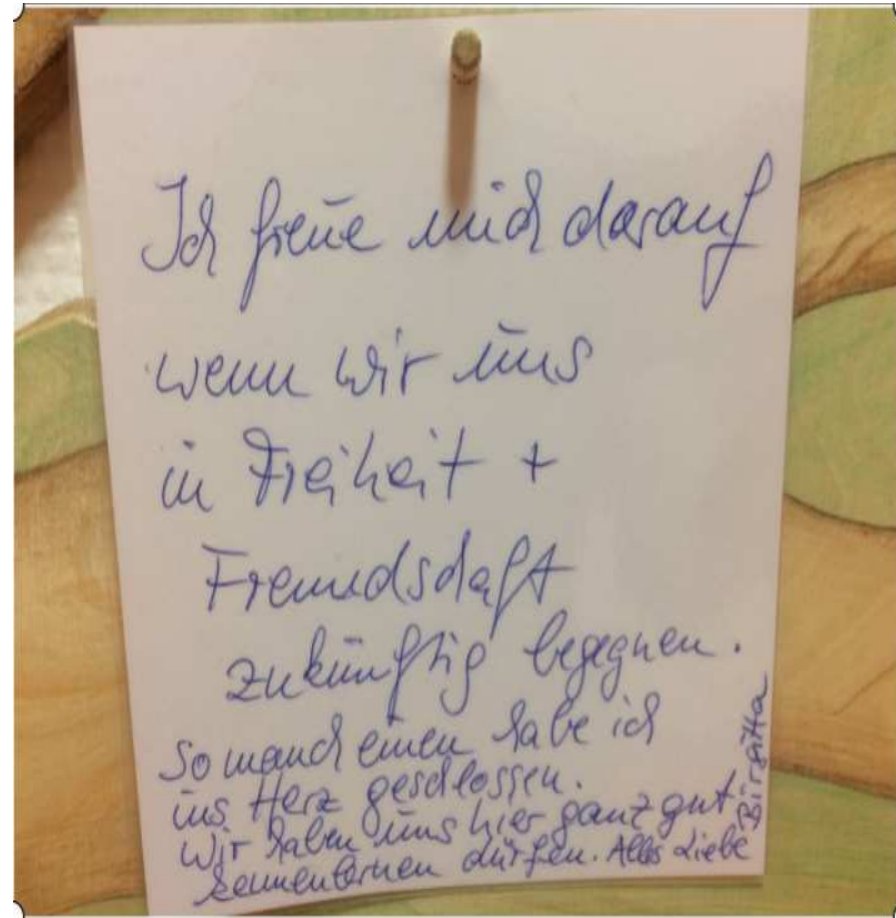 Ich freue mich darauf
wenn wir uns
in Freiheit +
Freundschaft
zukünftig begegnen.
So manch einen habe ich
ins Herz geschlossen.
Wir haben uns hier ganz gut
kennenlernen dürfen. Alles Liebe
Birgitta